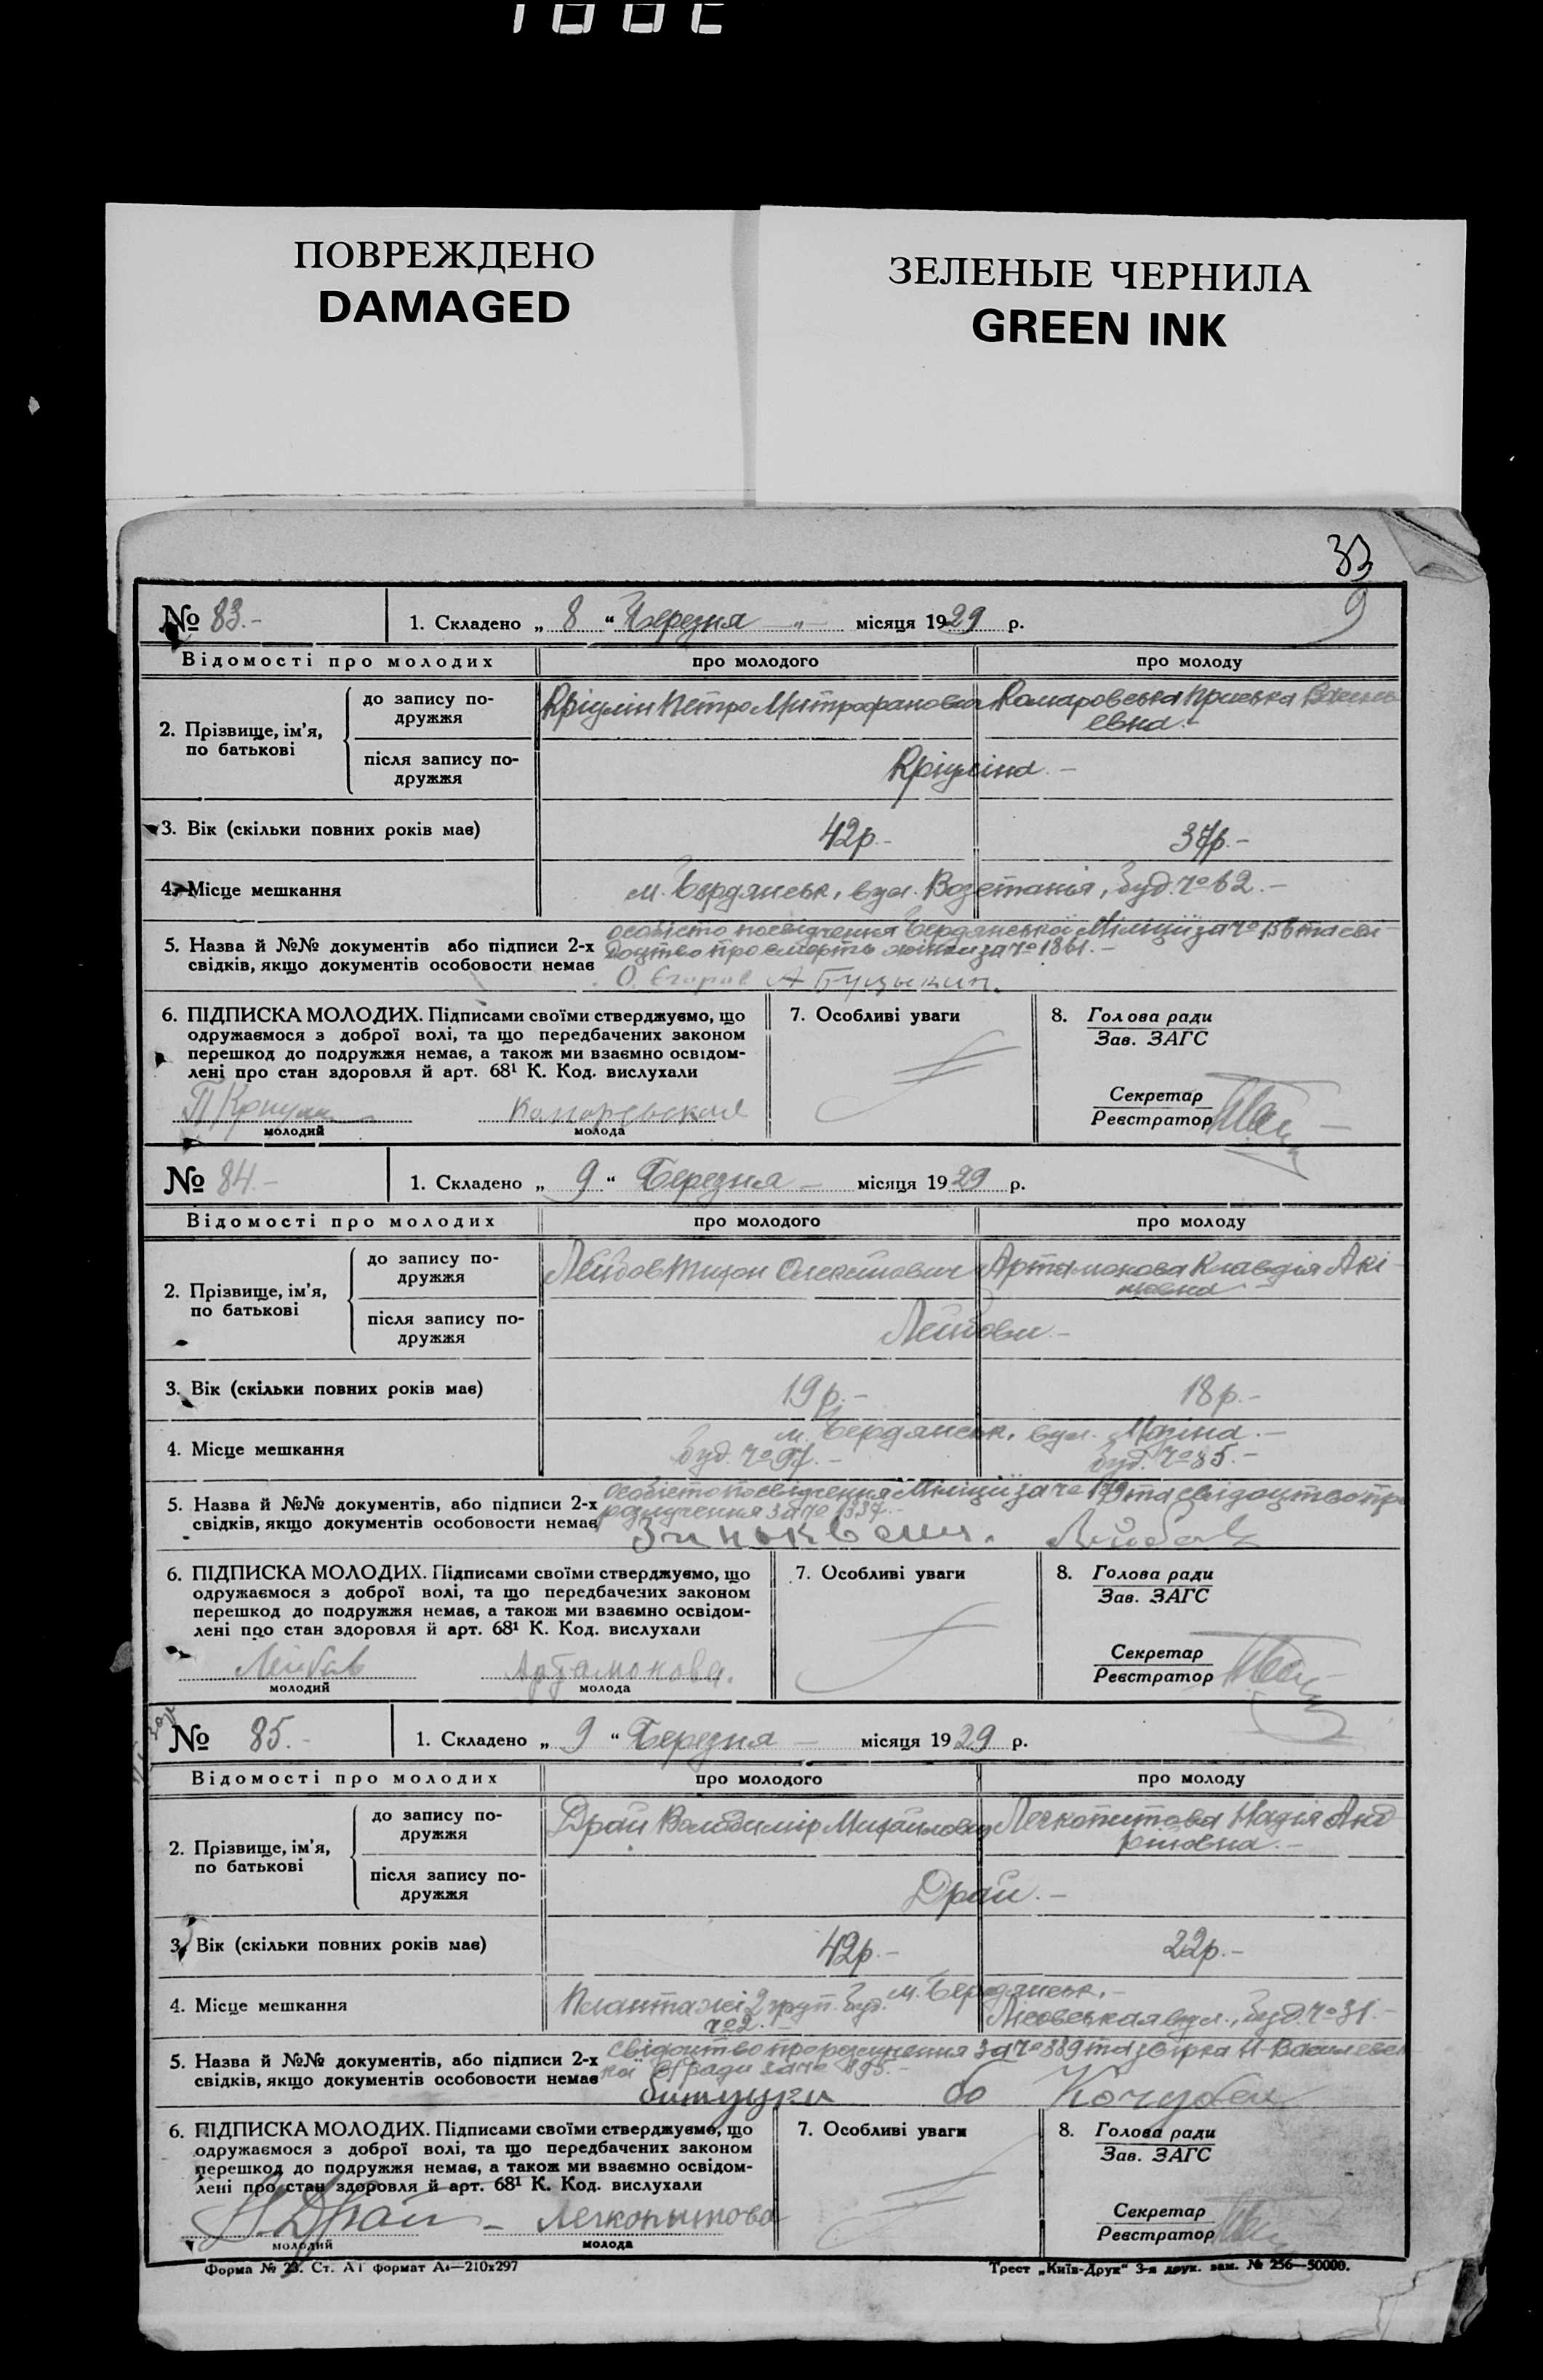 ПОВРЕЖДЕНО
DAMAGED
ЗЕЛЕНЫЕ ЧЕРНИЛА
GREEN INK
33
9
№ 83.- 1. Складено „ 8 “ Березня — „ — місяця 1929 р.
Відомості про молодих про молодого про молоду
2. Прізвище, ім'я, по батькові
до запису по-
дружжя
Кріулін Петро Митрофанович Комаровська Приська
евна.-
після запису по-
дружжя
Кріуліна.-
3. Вік (скільки повних років має) 42р.- 37р.-
4. Місце мешкання м. Бердянськ, вул. Возстания, буд. № 62.-
5. Назва й №№ документів або підписи 2-х
свідків, якщо документів особовости немає
особісто посвідчення Бердянської Міліції за № 156 та сві-
доцтво про смерть жінки за № 1861.-
О. Єгоров А Буцыкин.
6. ПІДПИСКА МОЛОДИХ. Підписами своїми стверджуємо, що
одружаємося з доброї волі, та що передбачених законом
перешкод до подружжя немає, а також ми взаємно освідом-
лені про стан здоровля й арт. 68¹ К. Код. вислухали
П Криулин
молодий
молода
7. Особливі уваги
8. Голова ради
Зав. ЗАГС
Секретар
Реєстратор
№ 84.- 1. Складено „ 9 “ Березня — місяця 1929 р.
Відомості про молодих про молодого про молоду
2. Прізвище, ім'я, по батькові
до запису по-
дружжя
Лейбов Тихон Олексійович Артамонова Клавдія Акі-
мовна
після запису по-
дружжя
Лейбови.-
3. Вік (скільки повних років має) 19р.- 18р.-
4. Місце мешкання
м. Бердянськ, вул. Мазіна.-
буд. № 97.- буд. № 85.-
5. Назва й №№ документів, або підписи 2-х
свідків, якщо документів особовости немає
особісто посвідчення Міліції за № 179 та свідоцтво про
розлучення за № 1337.-
Лейбов
6. ПІДПИСКА МОЛОДИХ. Підписами своїми стверджуємо, що
одружаємося з доброї волі, та що передбачених законом
перешкод до подружжя немає, а також ми взаємно освідом-
лені про стан здоровля й арт. 68¹ К. Код. вислухали
Лейбов
молодий
Артамонова.
молода
7. Особливі уваги
8. Голова ради
Зав. ЗАГС
Секретар
Реєстратор
№ 85.- 1. Складено „ 9 “ Березня — місяця 1929 р.
Відомості про молодих про молодого про молоду
2. Прізвище, ім'я, по батькові
до запису по-
дружжя
Драй Володимір Михайлович Легкопитова Надія Анд-
ріівна.-
після запису по-
дружжя
Драй.-
3. Вік (скільки повних років має) 42р.- 22р.-
4. Місце мешкання
м. Бердянськ.-
Плантажі 2 груп. буд. № 2.- Лісовськая вул., буд. № 31.-
5. Назва й №№ документів, або підписи 2-х
свідків, якщо документів особовости немає
свідоцтво про розлучення за № 389 та Н-Василевсь-
кої С/ради за № 895.-
Кочубей
6. ПІДПИСКА МОЛОДИХ. Підписами своїми стверджуємо, що
одружаємося з доброї волі, та що передбачених законом
перешкод до подружжя немає, а також ми взаємно освідом-
лені про стан здоровля й арт. 68¹ К. Код. вислухали
Драй
молодий
Легкопытова
молода
7. Особливі уваги
8. Голова ради
Зав. ЗАГС
Секретар
Реєстратор
Форма № 23. Ст. А1 формат А4—210х297
Трест „Київ-Друк“ 3-я друк. зам. № 256—50000.